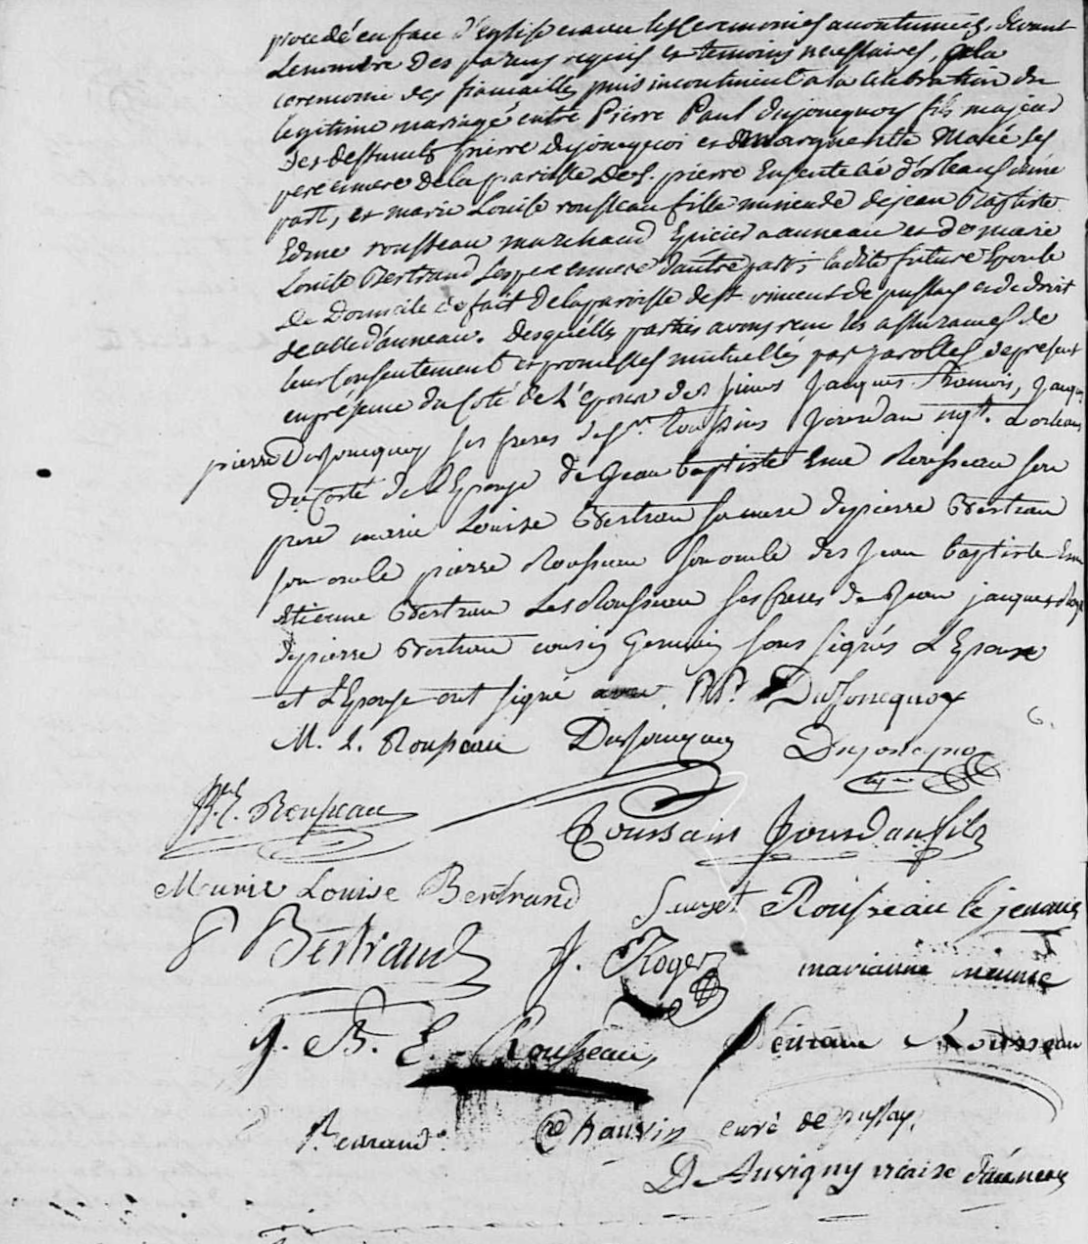 procédé en face d'Eglise avec les Ceremonies accoutumées, devant
Le nombre des parens requis et temoins necessaires, a la
ceremonie des fiancailles puis incontinent a la celebration du
legitime mariage entre Pierre Paul dujoncquoy fils majeur
des deffunts pierre dujoncquoi et de marguerite Marie ses
pere et mere de la paroisse de S. pierre d'orleans d'une
part, et marie Louise rousseau fille mineure de jean Baptiste
Edme rousseau marchand Epicier a auneau et de marie
Louise Bertrand ses pere et mere d'autre part; ladite future Epouse
de Domicile de fait de la paroisse de St. vincent de pussay et de droit
de celle d'auneau. desquelles parties avons recu les assurances de
leur Consentement et promesses mutuelles par parolles de present
en présence du Coté de L'époux des sieurs Jacques francois, Jacques
pierre Dujoncquoy ses freres de Sr. Toussins Jourdan ngt. a orleans
du Costé de L'Epouse de Jean baptiste Eme Rousseau son
pere marie Louise Bertran sa mere de pierre Bertran
son oncle pierre Rousseau son oncle des Jean baptiste Eme
étienne Bertran Les Rousseau ses freres de Jean jacques Roger
de pierre Bertran cousin Germain sous signés L'Epoux
et L'Epouse ont signé avec P.P. DuJoncquoy
M. L. Rousseau DuJoncquoy Dujoncquoy
E. Rousseau Toussaint Jourdan fils
Marie Louise Bertrand Rousseau le jeune
P Bertrand J. Roger marianne
J. B. E. Rousseau Rousseau
P. Bertrand Chauvin curé de pussay.
D'Auvigny vicaire d'auneau